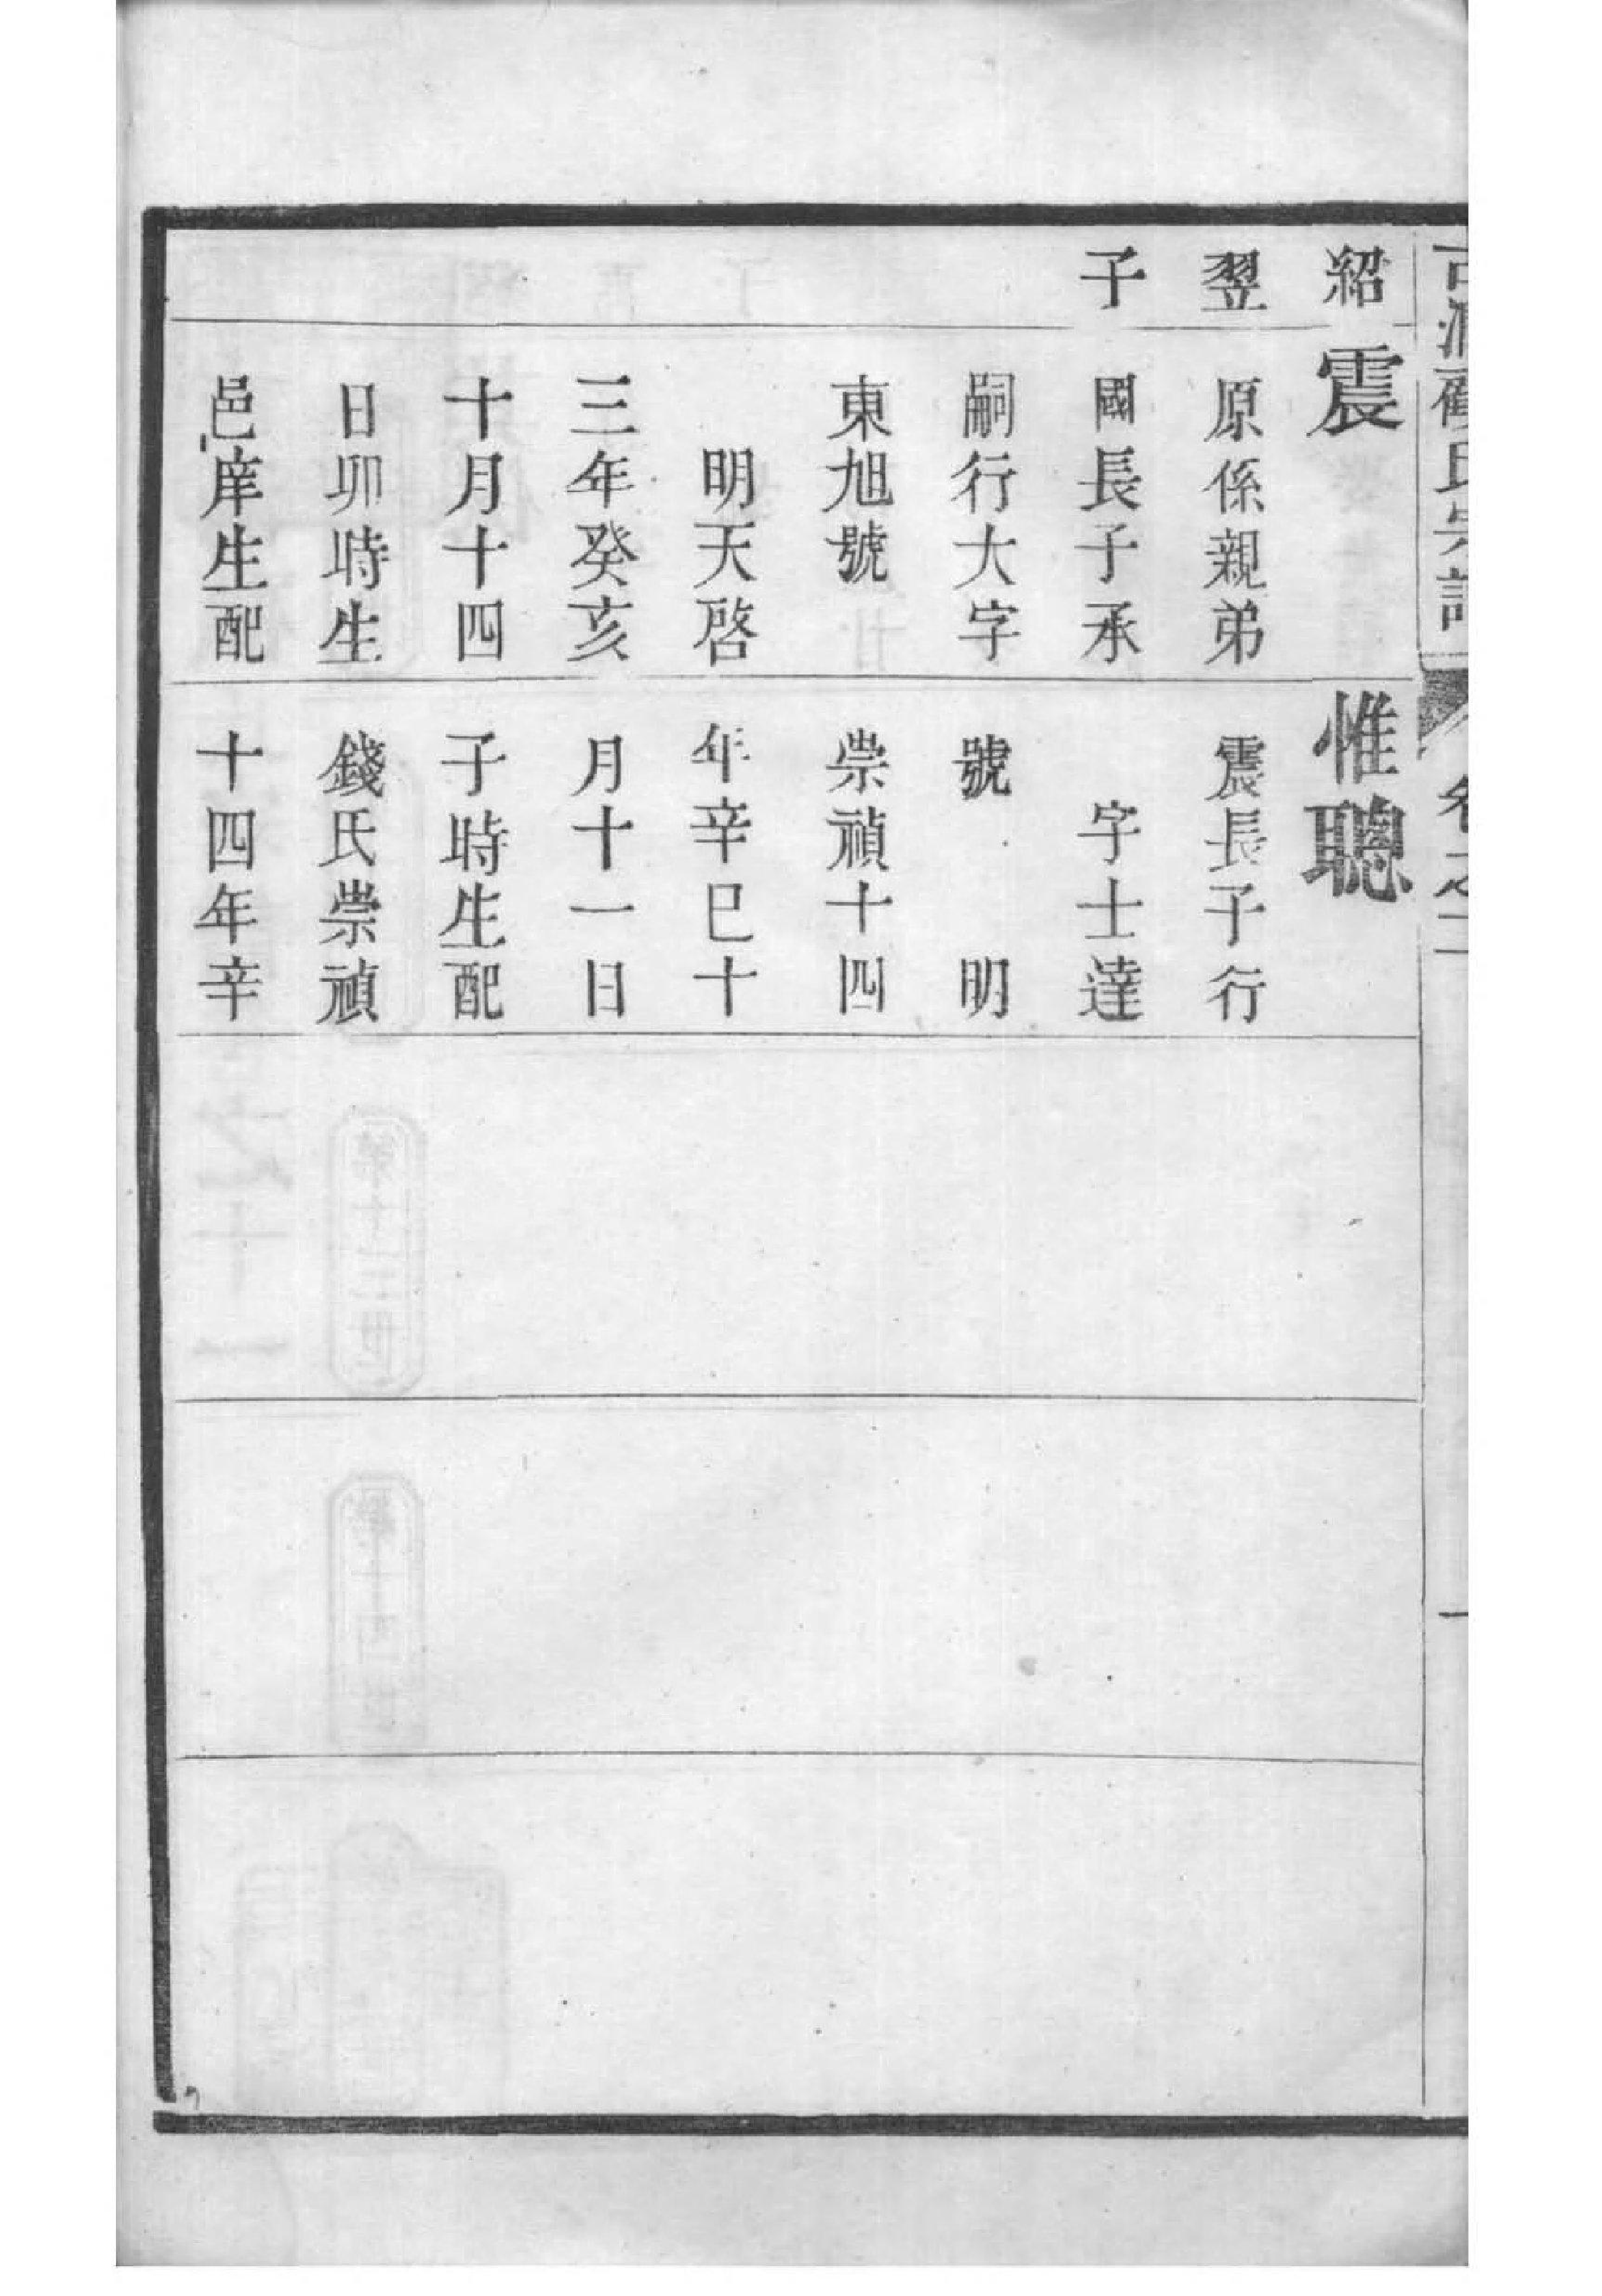 紹
翌
子
震
原係親弟
國長子承
嗣行大字
東旭號
明天啓
三年癸亥
十月十四
日卯時生
邑庠生配
惟聰
震長子行
字士達
號　明
崇禎十四
年辛巳十
月十一日
子時生配
錢氏崇禎
十四年辛